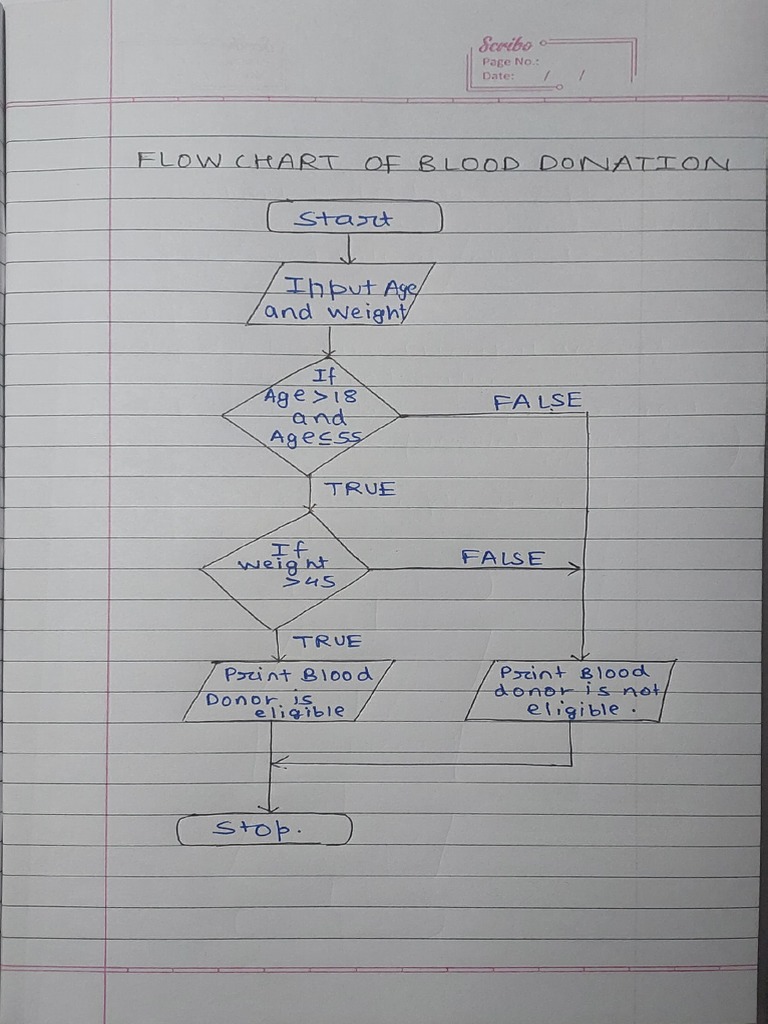 Scribo
Page No.:
Date: / /
FLOW CHART OF BLOOD DONATION
Start
Input Age
and Weight
If
Age>18
and
Age≤55
FALSE
TRUE
If
weight
>45
FALSE
TRUE
Print Blood
Donor is
eligible
Print Blood
donor is not
eligible.
Stop.